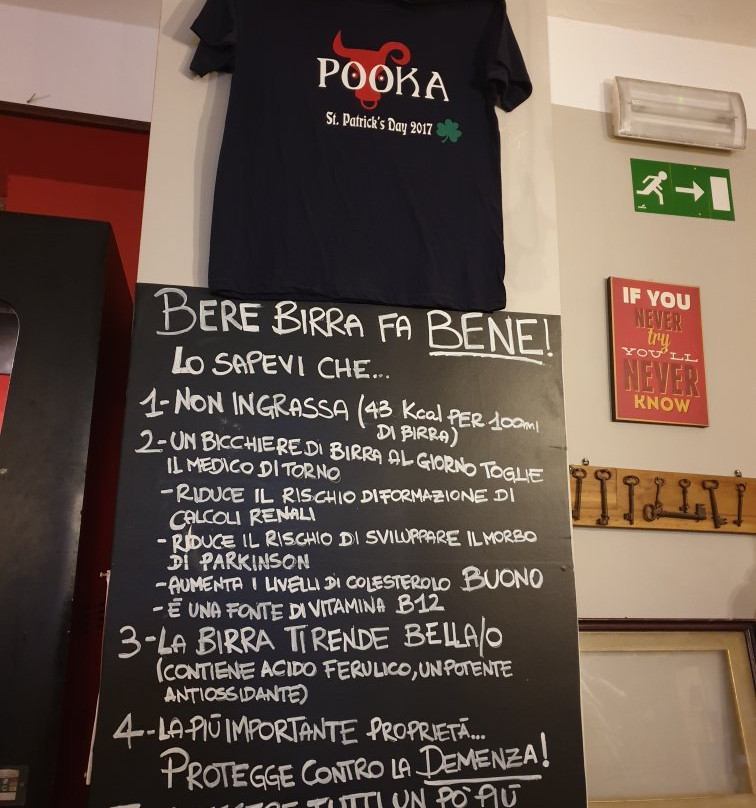 POOKA
St. Patrick's Day 2017
BERE BIRRA FA BENE!
LO SAPEVI CHE...
1-NON INGRASSA (43 Kcal PER 100ml
DI BIRRA)
2-UN BICCHIERE DI BIRRA AL GIORNO TOGLIE
IL MEDICO DI TORNO
-RIDUCE IL RISCHIO DI FORMAZIONE DI
CALCOLI RENALI
-RIDUCE IL RISCHIO DI SVILUPPARE IL MORBO
DI PARKINSON
-AUMENTA I LIVELLI DI COLESTEROLO BUONO
-È UNA FONTE DI VITAMINA B12
3-LA BIRRA TI RENDE BELLA/O
(CONTIENE ACIDO FERULICO, UN POTENTE
ANTIOSSIDANTE)
4-LA PIÙ IMPORTANTE PROPRIETÀ...
PROTEGGE CONTRO LA DEMENZA!
TUTTI UN PÒ PIÙ
IF YOU
NEVER
try
YOU'LL
NEVER
KNOW